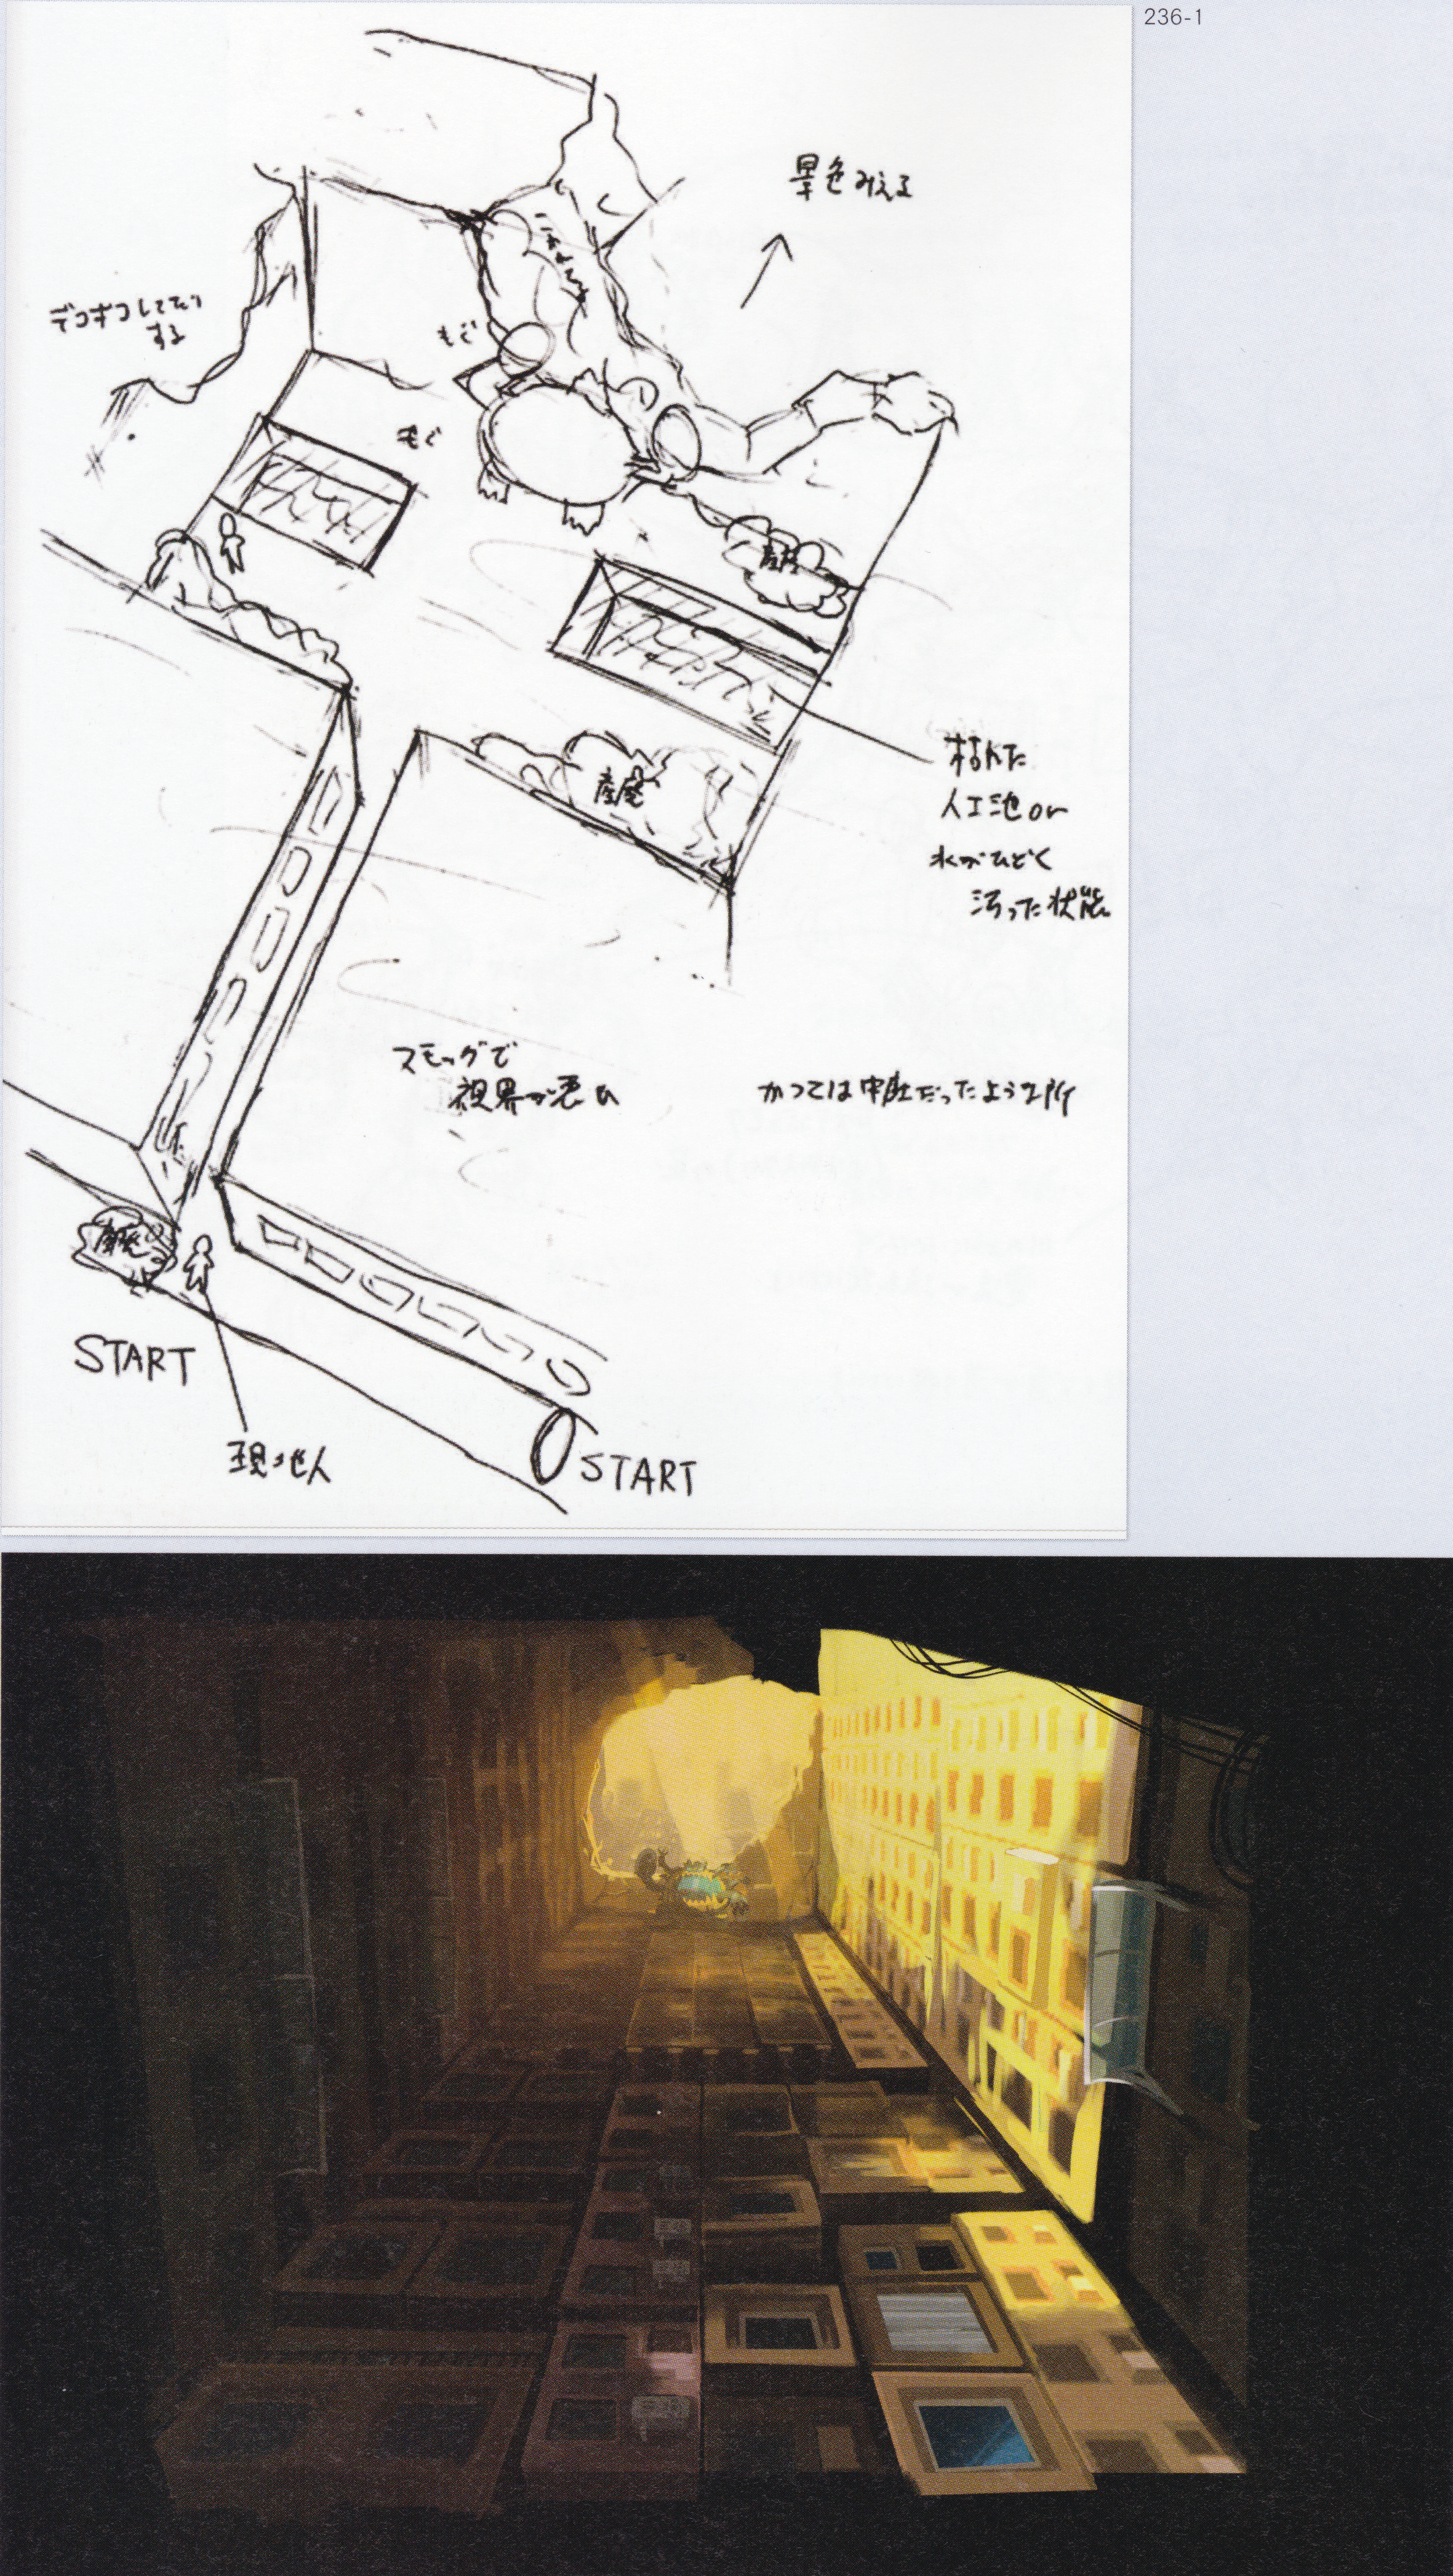 236-1
景色みえる
デコボコしてたり
する
もぐ
もぐ
産廃
枯れた
人工池or
水がひどく
汚った状態
産廃
スモッグで
視界が悪い
かつては中庭だったような所
産廃
START
現地人
START